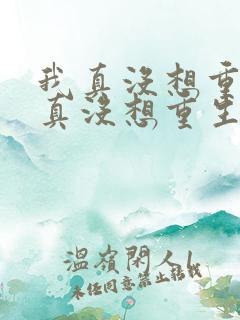 我真没想重
真没想重生
温岭闲人L
未经同意禁止转载